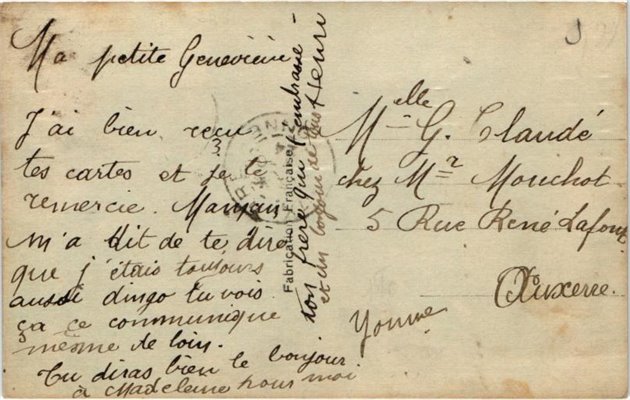 Ma petite Geneviève
J'ai bien reçu
tes cartes et te
remercie. Maman
m'a dit de te dire
que j'étais toujours
aussi dingo tu vois
ça ce communique
même de loin.
Tu diras bien le bonjour
à Madeleine pour moi
ton frère qui t'embrasse
et un toujours de plus Henri
Fabrication Française
Melle G. Claudé
chez Mr Mouchot
5 Rue René Lafon
Auxerre.
Yonne